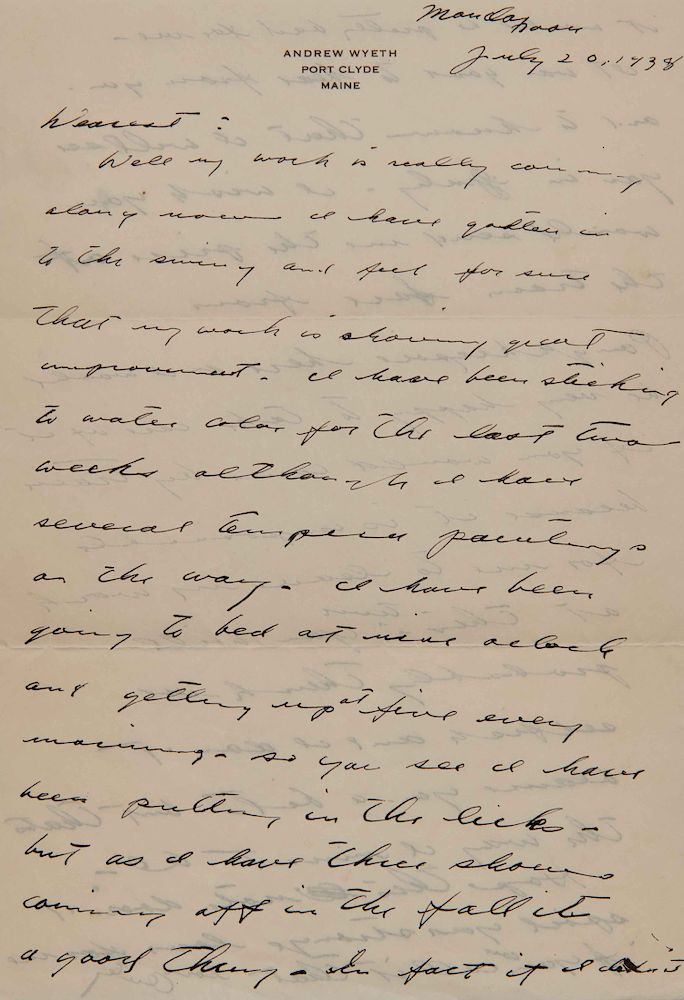 Monday noon
July 20, 1938
ANDREW WYETH
PORT CLYDE
MAINE
Dearest:
Well my work is really coming
along now I have gotten in
to the swing and feel for sure
that my work is showing great
improvement. I have been sticking
to water color for the last two
weeks although I have
several tempera paintings
on the way. I have been
going to bed at nine oclock
and getting up at five every
morning. so you see I have
been putting in the licks -
but as I have three shows
coming off in the fall its
a good thing - In fact if I didn't